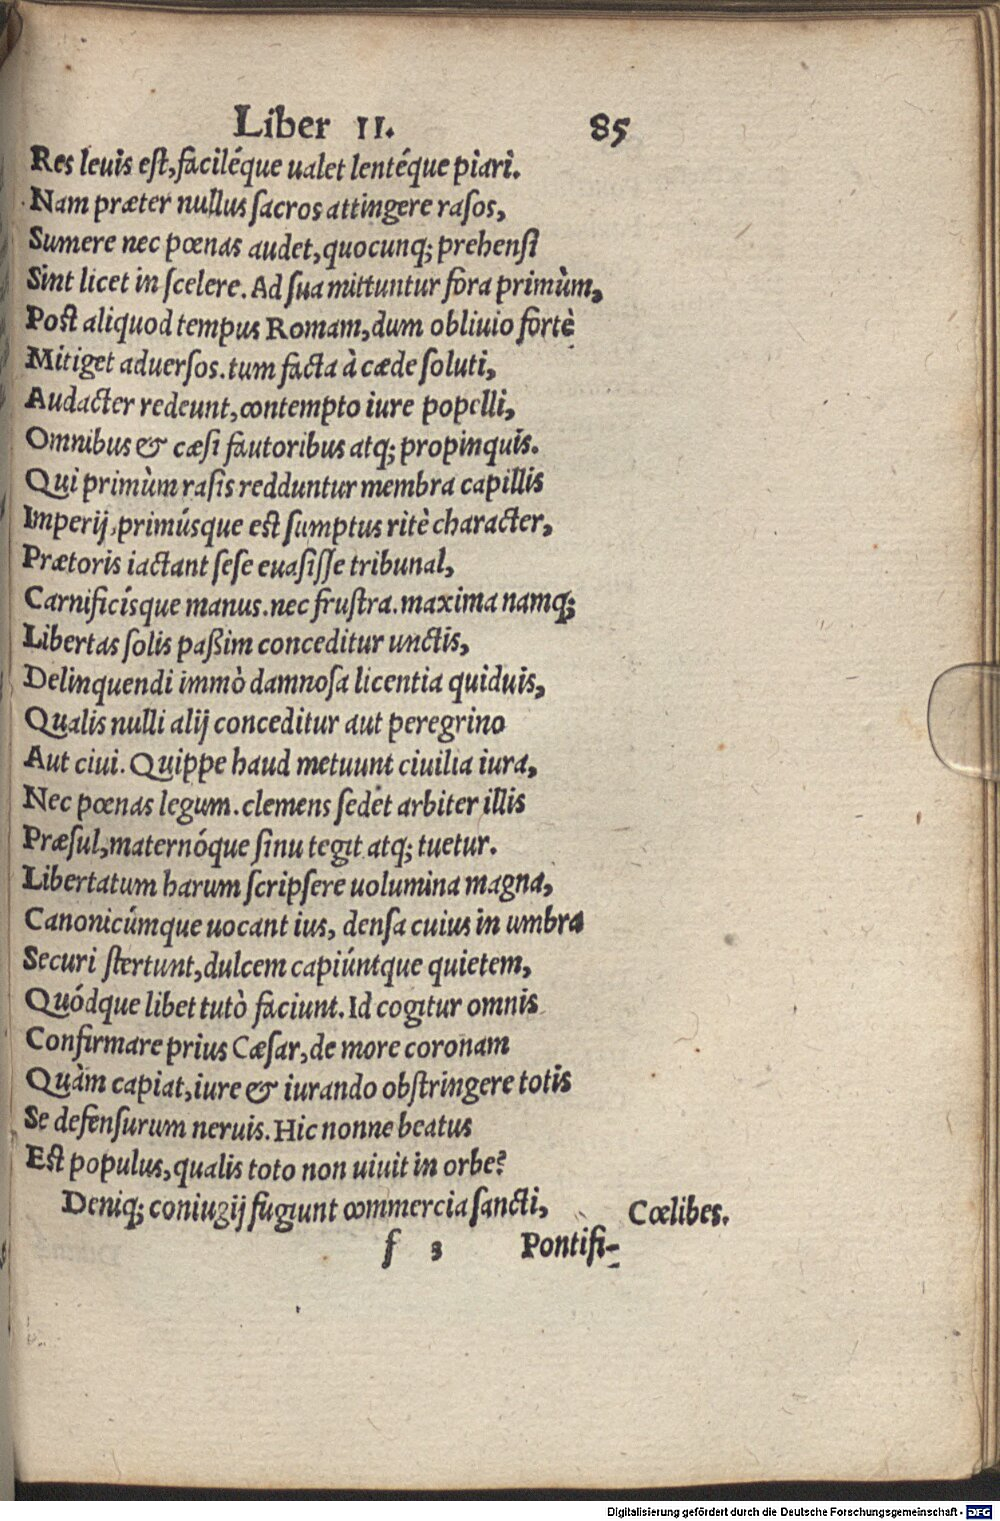 Liber II. 85
Res leuis est, faciléque ualet lentéque piari.
Nam præter nullus sacros attingere rasos,
Sumere nec pœnas audet, quocunq; prehensi
Sint licet in scelere. Ad sua mittuntur fora primùm,
Post aliquod tempus Romam, dum obliuio fortè
Mitiget aduersos. tum facta à cæde soluti,
Audacter redeunt, contempto iure popelli,
Omnibus & cæsi fautoribus atq; propinquis.
Qui primùm rasis redduntur membra capillis
Imperij, primúsque est sumptus ritè character,
Prætoris iactant sese euasisse tribunal,
Carnificísque manus. nec frustra. maxima namq;
Libertas solis paßim conceditur unctis,
Delinquendi immò damnosa licentia quiduis,
Qualis nulli alij conceditur aut peregrino
Aut ciui. Quippe haud metuunt ciuilia iura,
Nec pœnas legum. clemens sedet arbiter illis
Præsul, maternóque sinu tegit atq; tuetur.
Libertatum harum scripsere uolumina magna,
Canonicúmque uocant ius, densa cuius in umbra
Securi stertunt, dulcem capiúntque quietem,
Quódque libet tutò faciunt. Id cogitur omnis
Confirmare prius Cæsar, de more coronam
Quàm capiat, iure & iurando obstringere totis
Se defensurum neruis. Hic nonne beatus
Est populus, qualis toto non uiuit in orbe?
Deniq; coniugij fugiunt commercia sancti,
Cœlibes.
f 3 Pontifi-
Digitalisierung gefördert durch die Deutsche Forschungsgemeinschaft - DFG